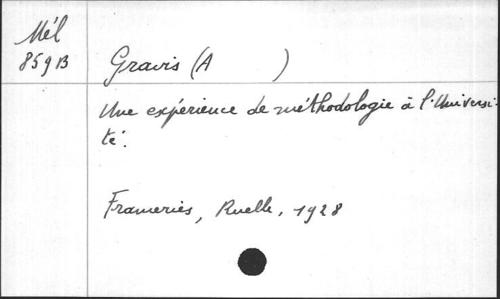 Mél
859B
Gravis (A )
Une expérience de méthodologie à l'Universi-
té.
Frameries, Ruelle, 1928